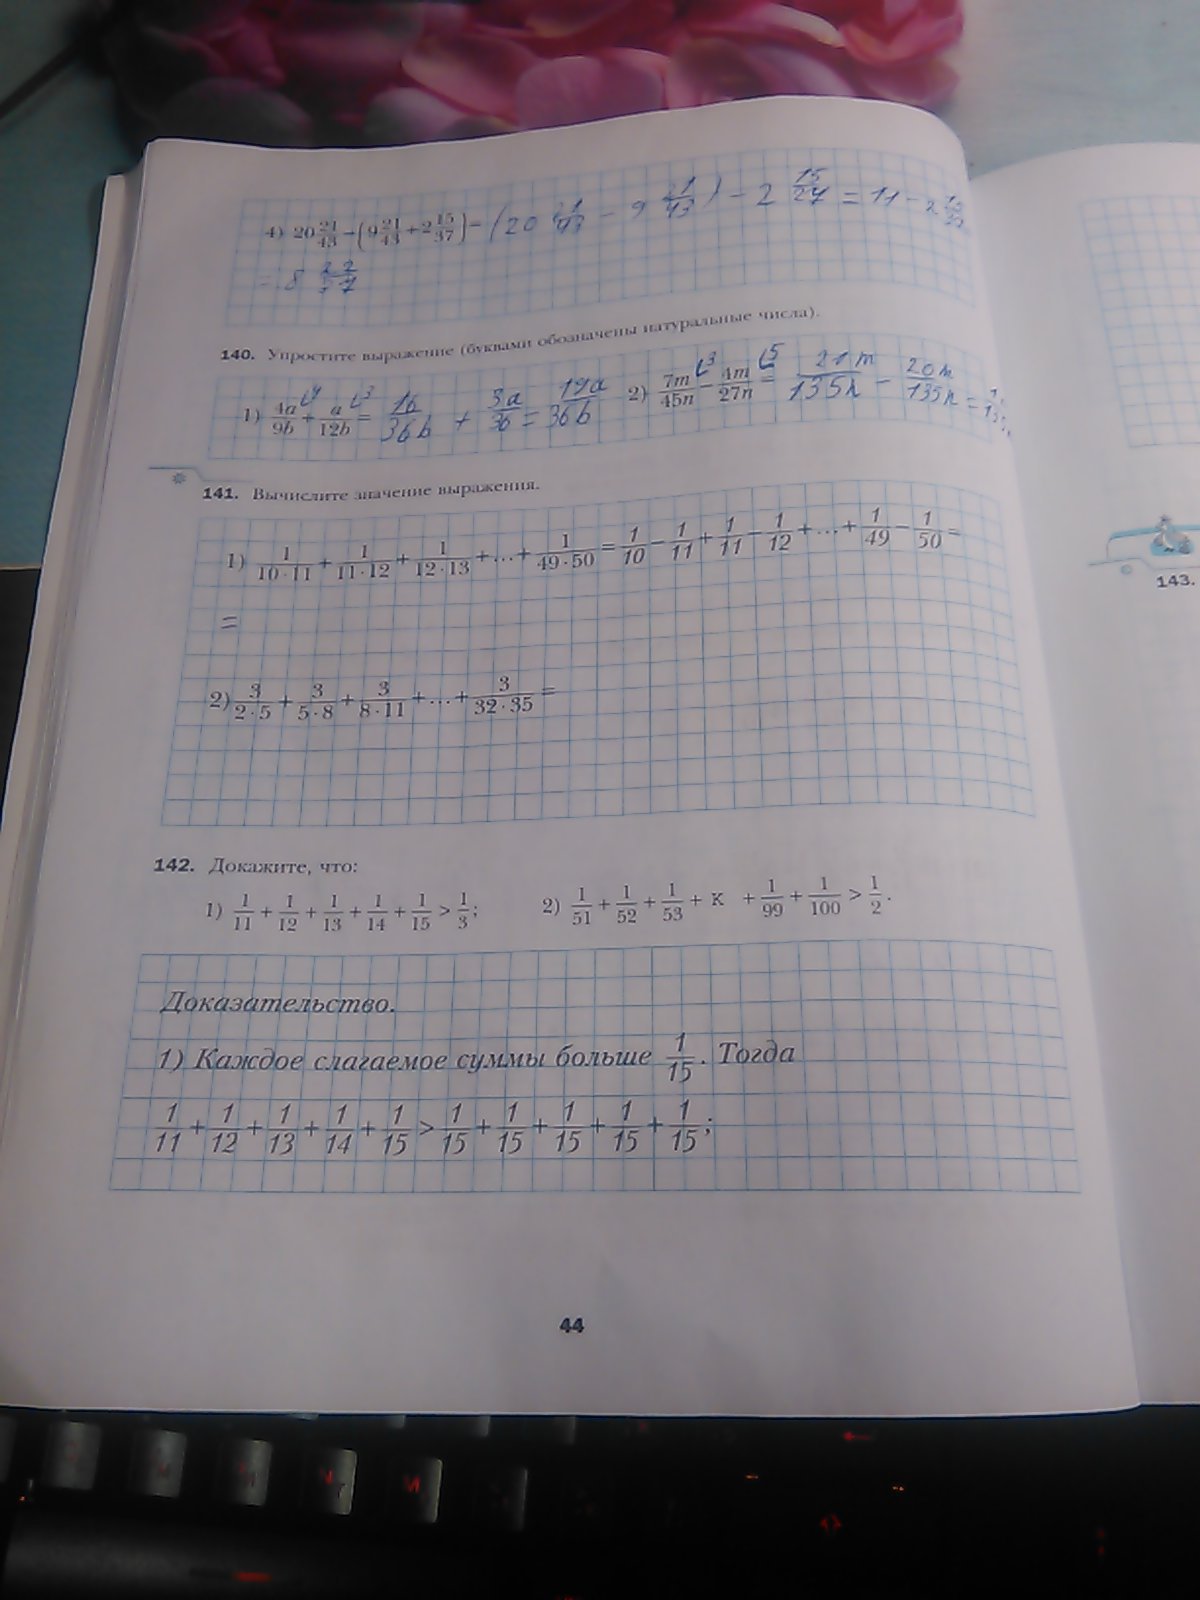 4) 20 21/43 − (9 21/43 + 2 15/37) = (20 21/43 − 9 21/43) − 2 15/27 = 11 − 2
= 8 22/37
140. Упростите выражение (буквами обозначены натуральные числа).
1) 4a/9b + a/12b = 16/36b + 3a/36 = 19a/36b 2) 7m/45n − 4m/27n = 21m/135n − 20m/135n =
141. Вычислите значение выражения.
1) 1/(10·11) + 1/(11·12) + 1/(12·13) + ... + 1/(49·50) = 1/10 − 1/11 + 1/11 − 1/12 + ... + 1/49 − 1/50 =
=
2) 3/(2·5) + 3/(5·8) + 3/(8·11) + ... + 3/(32·35) =
142. Докажите, что:
1) 1/11 + 1/12 + 1/13 + 1/14 + 1/15 > 1/3; 2) 1/51 + 1/52 + 1/53 + К + 1/99 + 1/100 > 1/2.
Доказательство.
1) Каждое слагаемое суммы больше 1/15. Тогда
1/11 + 1/12 + 1/13 + 1/14 + 1/15 > 1/15 + 1/15 + 1/15 + 1/15 + 1/15;
44
143.